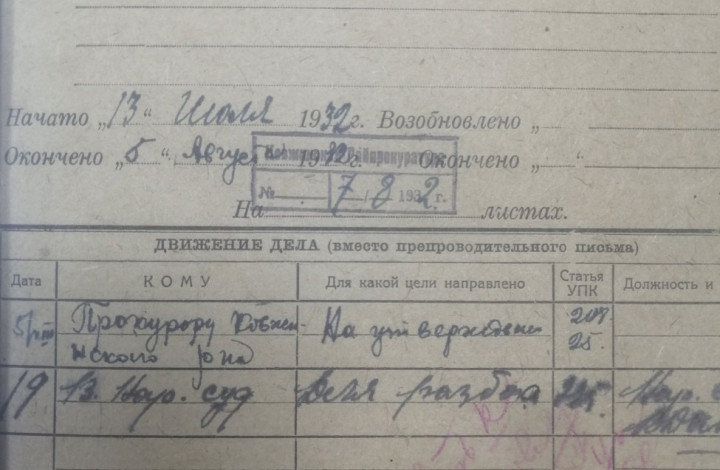 Начато „13“ Июля 1932г. Возобновлено „
Окончено „5“ Август 1932г. Окончено „ “
Райпрокуратура
№ 7/8 1932г.
На листах.
ДВИЖЕНИЕ ДЕЛА (вместо препроводительного письма)
Дата КОМУ Для какой цели направлено Статья УПК Должность и
5/VIII Прокурору Ковжин- На утверждение
ского р-на 25.
19 В. Нар. суд Для разбора Нар.